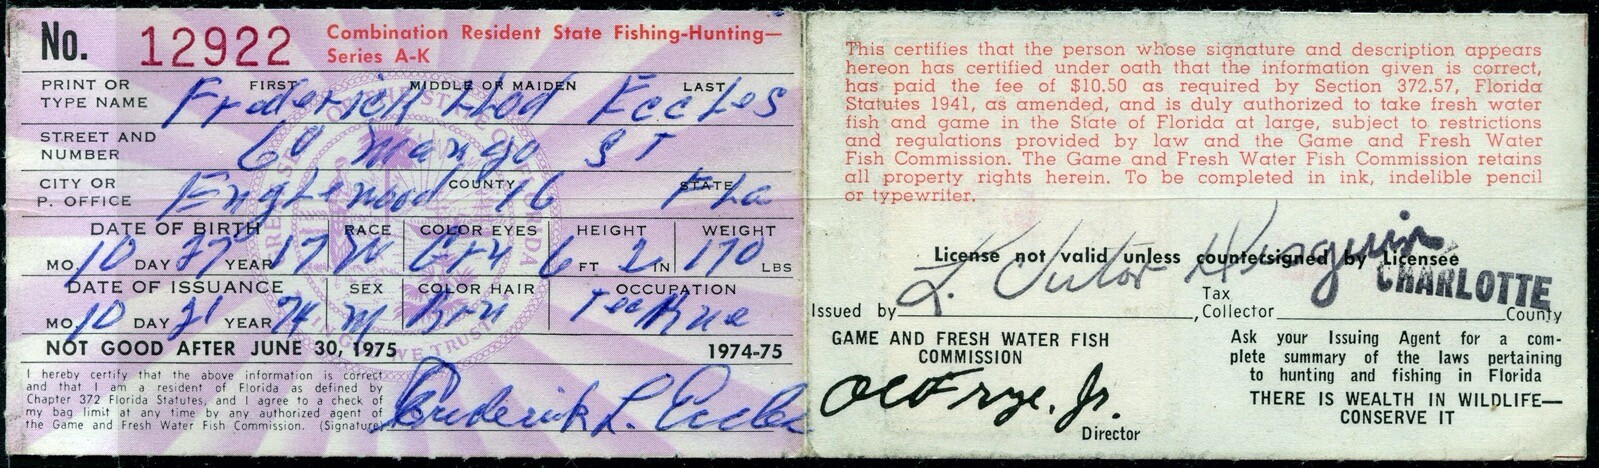 No. 12922 Combination Resident State Fishing-Hunting—
Series A-K
PRINT OR TYPE NAME FIRST MIDDLE OR MAIDEN LAST
Frederick Eccles
STREET AND NUMBER
60 Mango ST
CITY OR P. OFFICE COUNTY STATE
Englewood 16 Fla
DATE OF BIRTH RACE COLOR EYES HEIGHT WEIGHT
MO 10 DAY 27 YEAR 17 W Gry 6 FT 2 IN 170 LBS
DATE OF ISSUANCE SEX COLOR HAIR OCCUPATION
MO 10 DAY 21 YEAR 74 M Brn
NOT GOOD AFTER JUNE 30, 1975 1974-75
I hereby certify that the above information is correct
and that I am a resident of Florida as defined by
Chapter 372 Florida Statutes, and I agree to a check of
my bag limit at any time by any authorized agent of
the Game and Fresh Water Fish Commission. (Signature)
Frederick L. Eccles
This certifies that the person whose signature and description appears
hereon has certified under oath that the information given is correct,
has paid the fee of $10.50 as required by Section 372.57, Florida
Statutes 1941, as amended, and is duly authorized to take fresh water
fish and game in the State of Florida at large, subject to restrictions
and regulations provided by law and the Game and Fresh Water
Fish Commission. The Game and Fresh Water Fish Commission retains
all property rights herein. To be completed in ink, indelible pencil
or typewriter.
License not valid unless countersigned by Licensee
L. Victor
CHARLOTTE
Issued by, Tax Collector County
GAME AND FRESH WATER FISH
COMMISSION
O E Frye, Jr.
Director
Ask your Issuing Agent for a com-
plete summary of the laws pertaining
to hunting and fishing in Florida
THERE IS WEALTH IN WILDLIFE—
CONSERVE IT